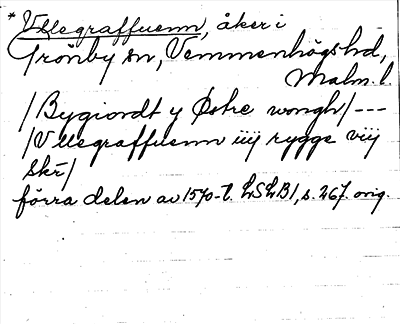 * Vllegraffuenn, åker i
Grönby sn, Vemmenhögs hd,
Malm. l.
/Bygiordt y Østre wongh/ ---
/Vllegraffuenn iiij rygge viij
skr/
förra delen av 1570-t. LSLB1, s. 267. orig.